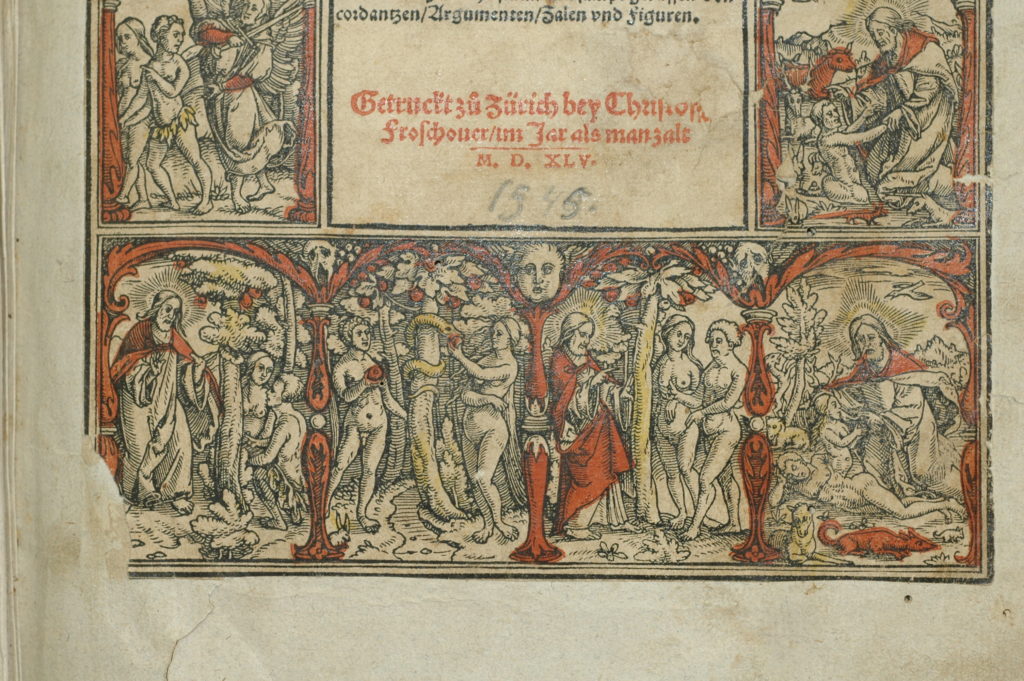 cordantzen/Argumenten/Zalen vnd Figuren.
Getruckt zů Zürich bey Christoff
Froschouer/im Jar als man zalt
M. D. XLV.
1545.